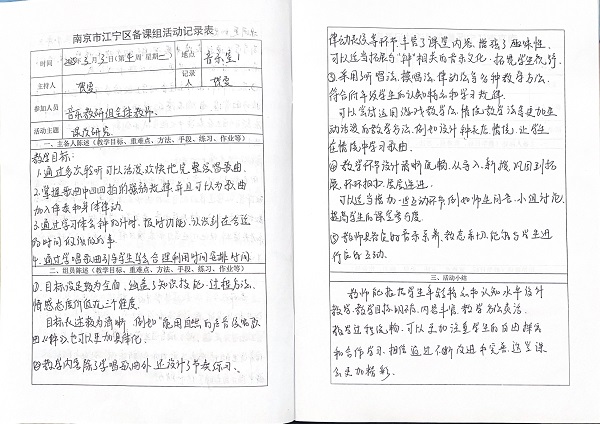 南京市江宁区备课组活动记录表
时间
2025年3月3日(第4周 星期一)
地点
音乐室1
主持人
记录人
参加人员
音乐教研组全体教师
活动主题
课友研究
一、主备人陈述(教学目标、重难点、方法、手段、练习、作业等)
教学目标:
1.通过多次聆听可以活泼欢快地完整演唱歌曲。
2.掌握歌曲中四四拍的强弱规律,并且可以为歌曲
加入伴奏和身体律动。
3.通过学习体会钟的计时、报时功能,认识到在合适
的时间做该做的事。
4.通过学唱歌曲引导学生学会合理利用时间安排时间
二、组员陈述(教学目标、重难点、方法、手段、练习、作业等)
①目标设定较为全面,涵盖了知识技能、过程方法、
情感态度价值观三个维度。
目标表述较为清晰,例如"能用自然的声音演唱歌
曲"等,也可以更加具体化。
②教学内容除了学唱歌曲外,还设计了节奏练习、
律动表演等环节,丰富了课堂内容,增强了趣味性。
可以适当拓展与"钟"相关的音乐文化,拓宽学生视野。
③采用听唱法、模唱法、律动法等多种教学方法,
符合低年级学生的认知特点和学习规律。
可以尝试运用游戏教学法、情境教学法等更加生
动活泼的教学方法,例如设计钟表店情境,让学生
在情境中学习歌曲。
④教学环节设计清晰流畅,从导入、新授、巩固到拓
展,环环相扣,层层递进。
可以适当增加一些互动环节,例如师生问答、小组讨论,
提高学生的课堂参与度。
⑤教师具备良好的音乐素养,教态亲切,能够与学生进
行良好互动。
三、活动小结
教师能根据学生年龄特点和认知水平设计
教学,教学目标明确,内容丰富,教学方法灵活,
教学过程流畅。可以更加注重学生的
和合作学习,相信通过不断改进和完善,这堂课
会更加精彩。